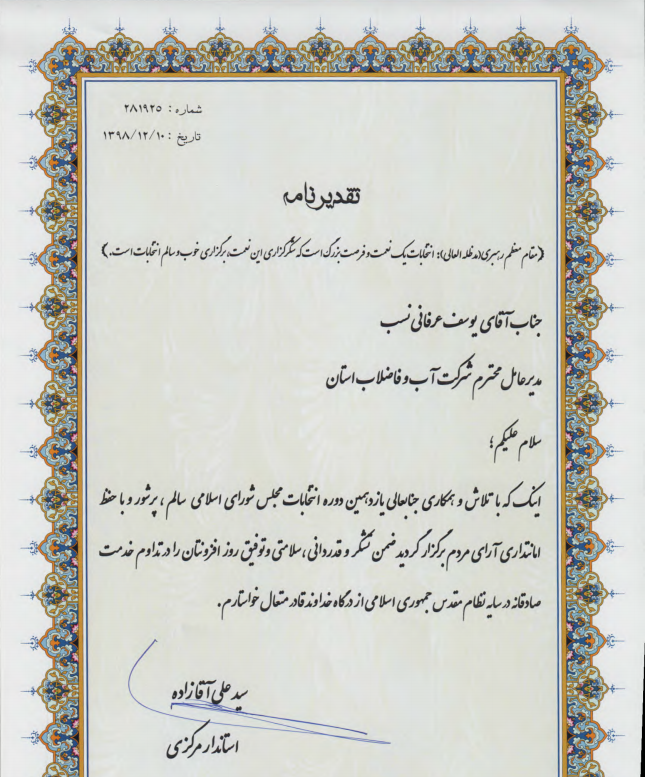 شماره : ۲۸۱۹۲۵
تاریخ : ۱۳۹۸/۱۲/۱۰
تقدیرنامه
(مقام معظم رهبری(مدظله العالی): انتخابات یک نعمت و فرصت بزرگ است که شکرگزاری این نعمت، برگزاری خوب و سالم انتخابات است.)
جناب آقای یوسف عرفانی نسب
مدیرعامل محترم شرکت آب و فاضلاب استان
سلام علیکم؛
اینک که با تلاش و همکاری جنابعالی یازدهمین دوره انتخابات مجلس شورای اسلامی سالم ، پرشور و با حفظ
امانتداری آرای مردم برگزار گردید ضمن تشکر و قدردانی ، سلامتی و توفیق روز افزونتان را در تداوم خدمت
صادقانه در سایه نظام مقدس جمهوری اسلامی از درگاه خداوند قادر متعال خواستارم.
سید علی آقازاده
استاندار مرکزی